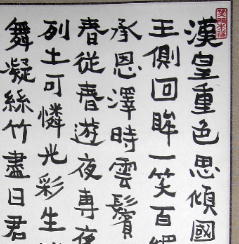 漢皇重色思傾國
王側回眸一笑百
承恩澤時雲鬢
春從春遊夜專夜
列土可憐光彩生
舞凝絲竹盡日君